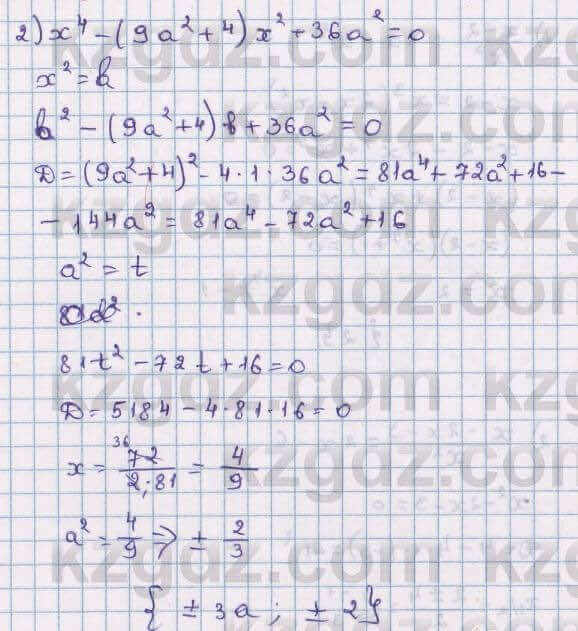 2) x⁴ - (9a² + 4)x² + 36a² = 0
x² = b
b² - (9a² + 4)b + 36a² = 0
D = (9a² + 4)² - 4 · 1 · 36a² = 81a⁴ + 72a² + 16 -
- 144a² = 81a⁴ - 72a² + 16
a² = t
81t² - 72t + 16 = 0
D = 5184 - 4 · 81 · 16 = 0
x = 36 72 / 2 · 81 = 4/9
a² = 4/9 => ± 2/3
{ ± 3a ; ± 2 }
kzgdz.com